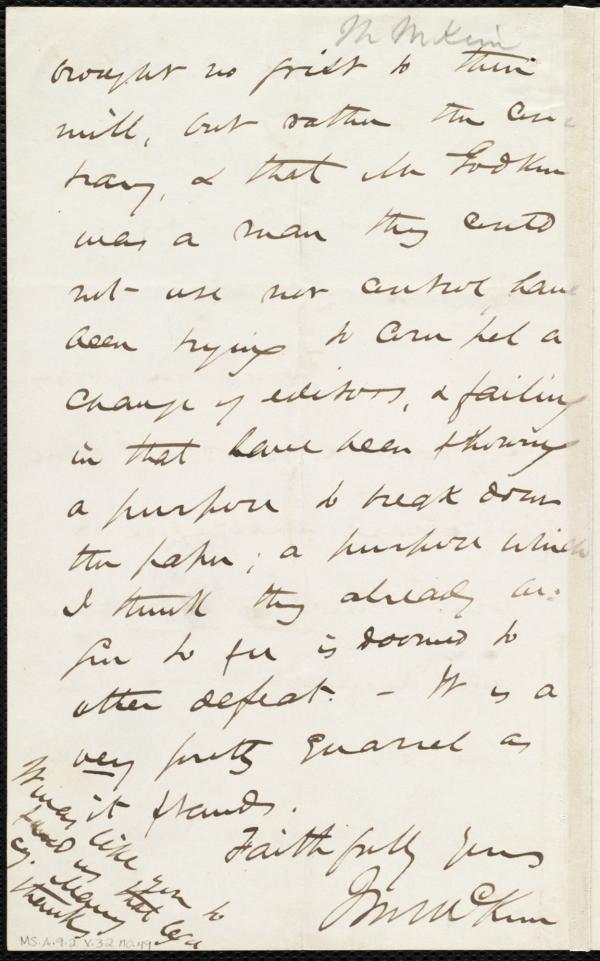 M McKim
brought no grist to their
mill, but rather the con
trary, & that Mr Godkin
was a man they could
not use nor control, have
been trying to compel a
change of editors, & failing
in that have been showing
a purpose to break down
the paper; a purpose which
I think they already be-
gin to see is doomed to
utter defeat. - It is a
very pretty quarrel as
it stands.
Faithfully yours
J M McKim
It was like you to
send us that lega
cy. Many
thanks
MS.A.9.2 V.32 no.49